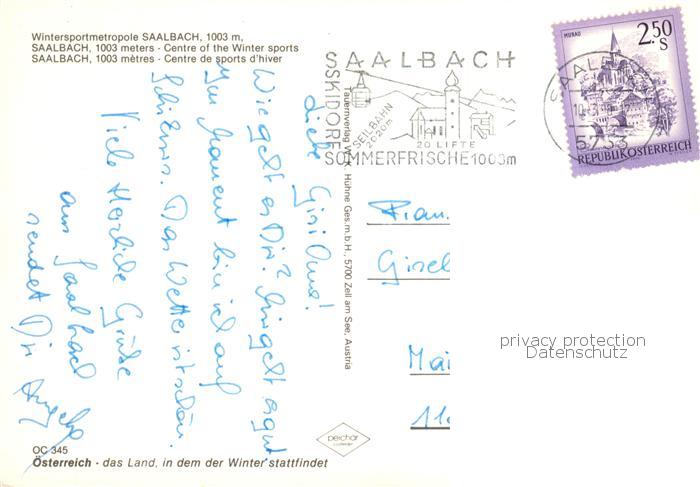 Wintersportmetropole SAALBACH, 1003 m,
SAALBACH, 1003 meters - Centre of the Winter sports
SAALBACH, 1003 mètres - Centre de sports d'hiver
Liebe Gisi Oma!
Wie geht es Dir? Mir geht es gut.
Im Moment bin ich auf
Schikurs. Das Wetter ist schön.
Viele Herzliche Grüße
aus Saalbach
sendet Dir
OC 345
Österreich - das Land, in dem der Winter stattfindet
Tauernverlag W. K. Hühne Ges.m.b.H., 5700 Zell am See, Austria
peichär
SAALBACH
SKIDORF
SEILBAHN
2020m
20 LIFTE
SOMMERFRISCHE 1003m
MURAU
2.50
S
REPUBLIK ÖSTERREICH
5753
Frau
Gisel
Mai
privacy protection
Datenschutz